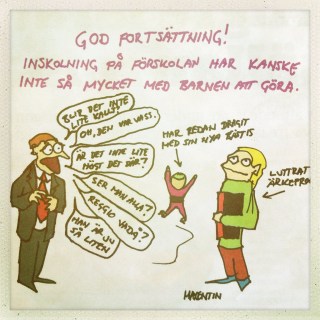 GOD FORTSÄTTNING!
INSKOLNING PÅ FÖRSKOLAN HAR KANSKE
INTE SÅ MYCKET MED BARNEN ATT GÖRA.
BLIR DET INTE
LITE KALLT?
OH, DEN VAR VASS.
ÄR DET INTE LITE
HÖGT DET DÄR?
SER MAN ALLA?
REGGIO VADÅ?
MAN ÄR JU
SÅ LITEN
HAR REDAN DRAGIT
MED SIN NYA BÄSTIS
LUTTRAT